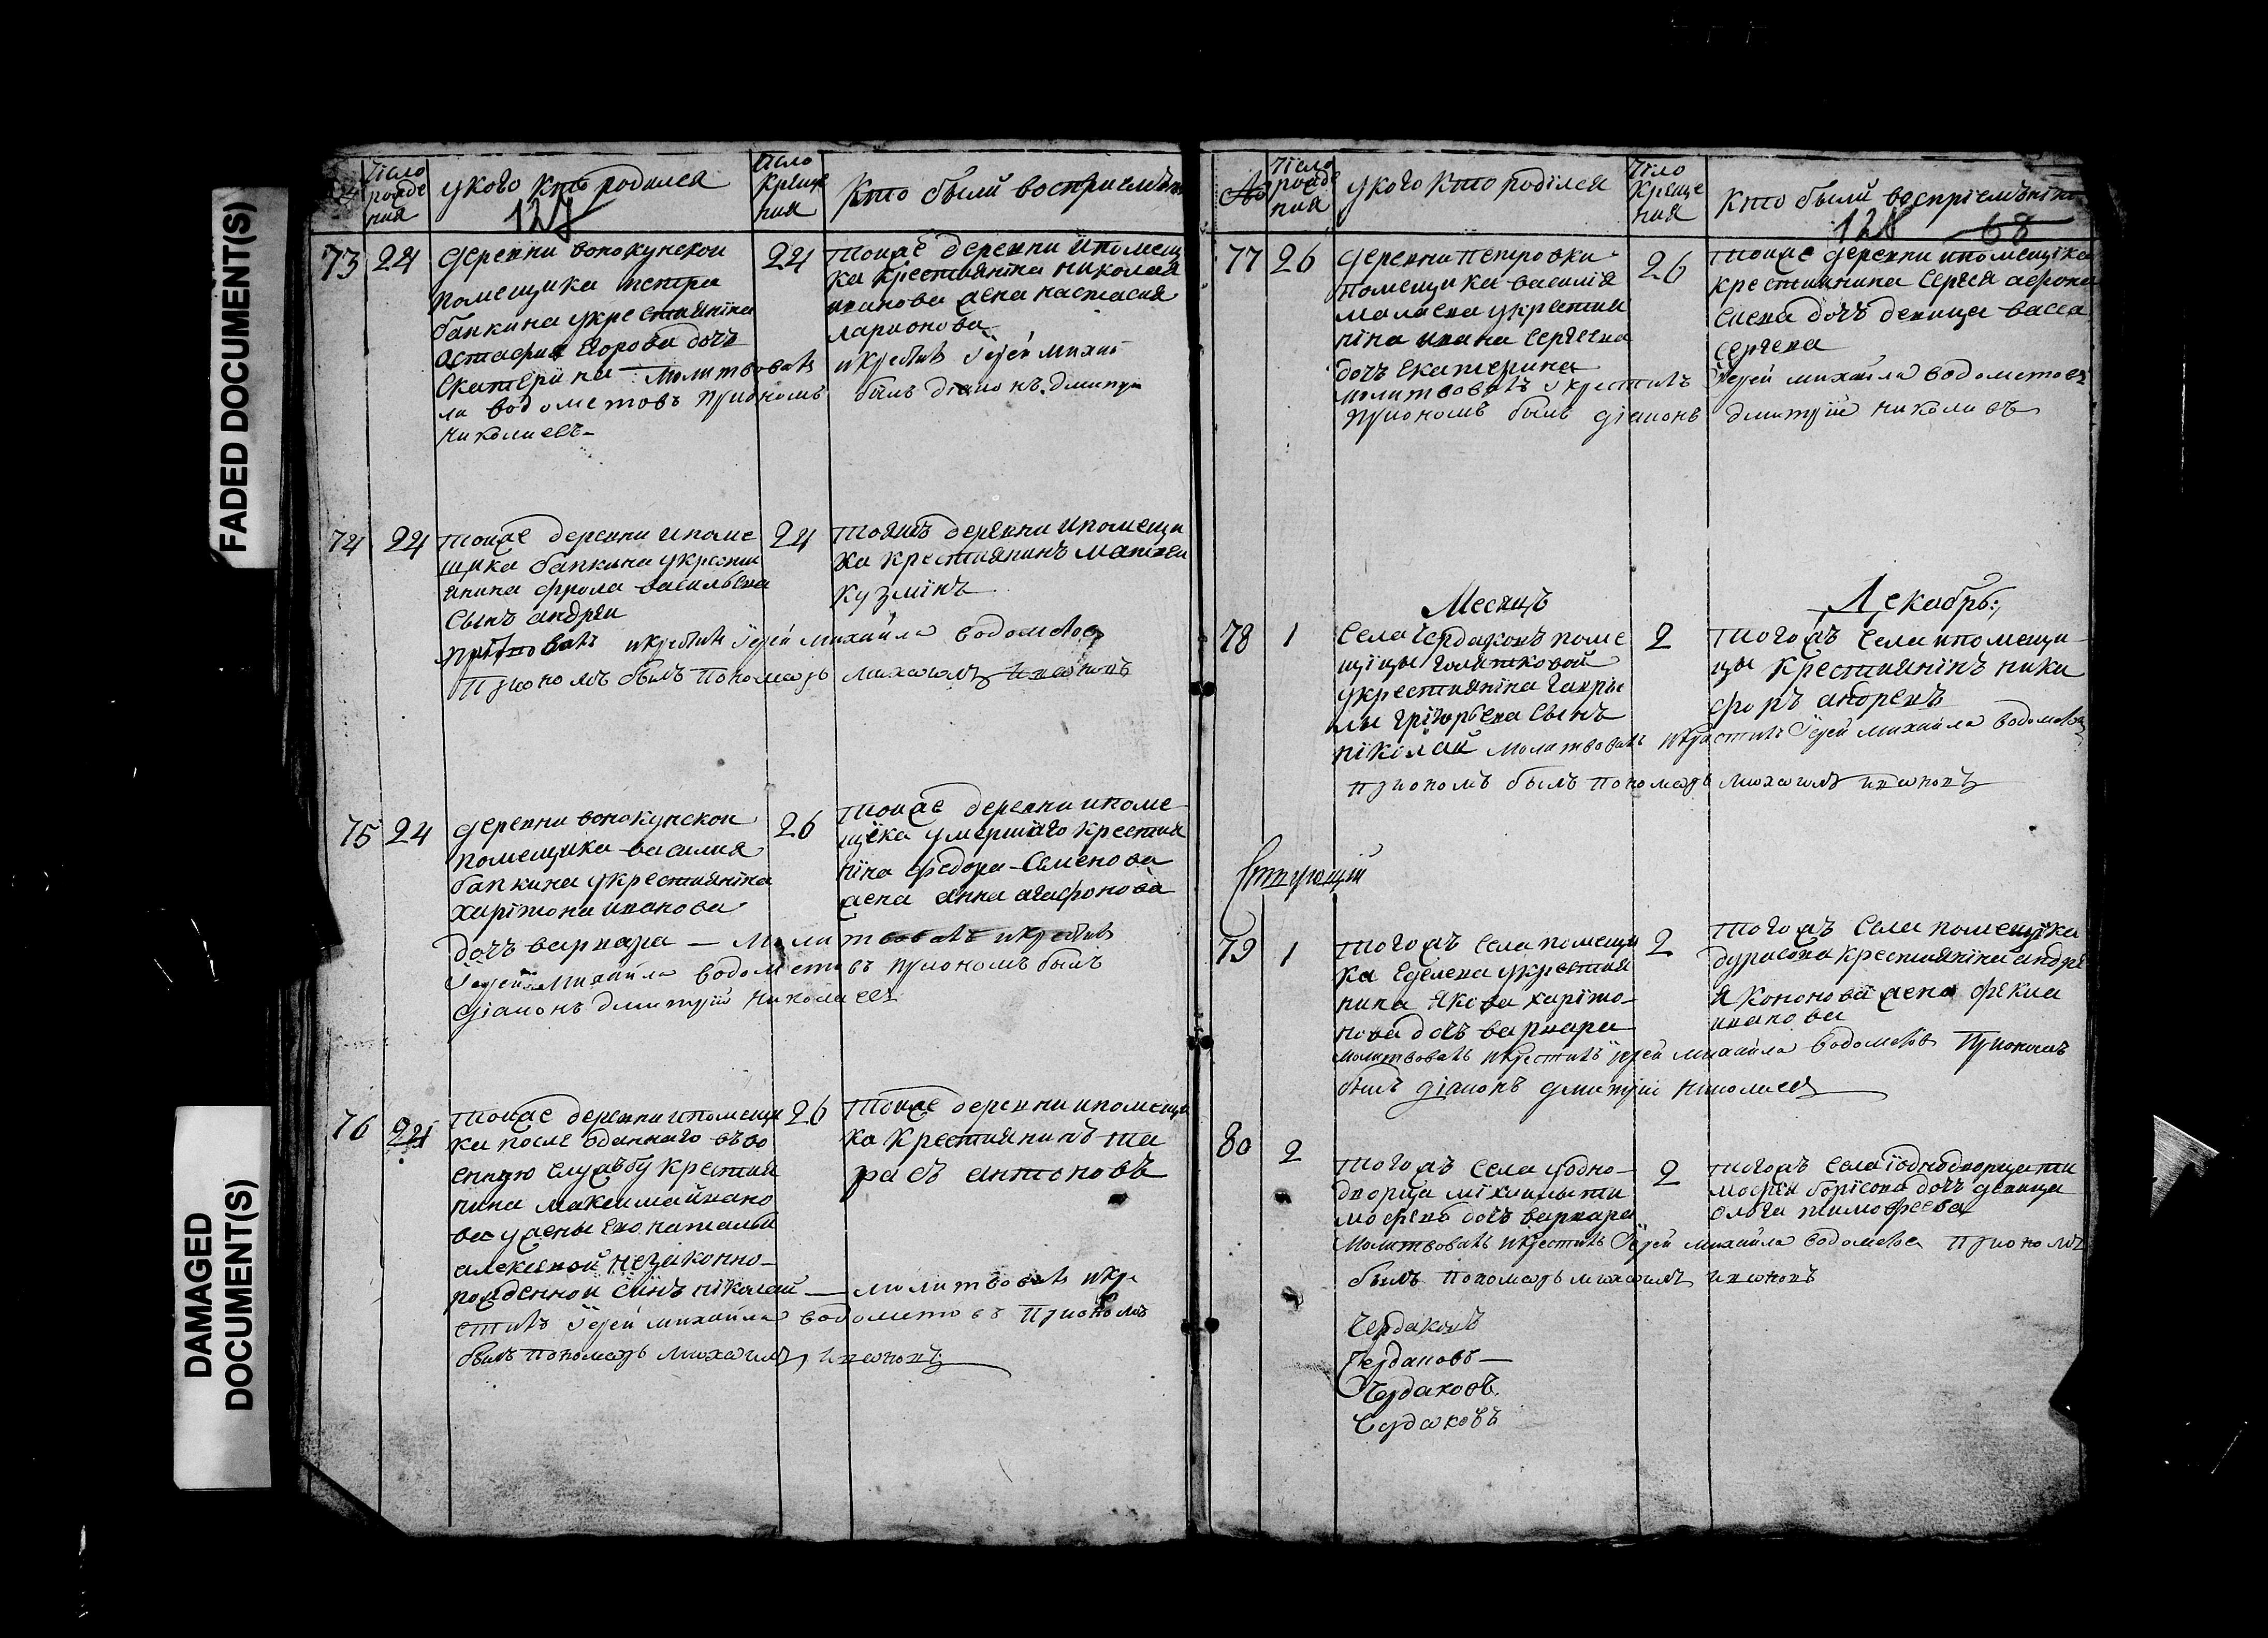 FADED DOCUMENT(S)
DAMAGED
DOCUMENT(S)
Число рожде ния
у кого кто родился
Число Креще ния
Кто были восприемъни
73 24 деревни вонокунскои
помещика петра
бапкина укрестиянина
астафия Егорова дочъ
Екатерина молитвовалъ икрестилъ Їерей михаи
ла водометовъ при ономъ былъ диаконъ дмитри
николаевъ
24 тоиже деревни ипомещи
ка крестиянина николая
иванова жена настасия
ларионова
74 24 тоиже деревни ипоме
щика бапкина укрести
янина фрола васильева
Сынъ андреи
икрестилъ Їерей михаила водометовъ
при ономъ былъ пономарь михаилъ ивановъ
24 тояжъ деревни ипомещи
ка крестиянинъ матвеи
кузминъ
75 24 деревни вонокунскои
помещика василия
бапкина укрестиянина
харитона иванова
дочъ варвара — молитвовалъ икрестилъ
Їерей михаила водометовъ при ономъ былъ
діаконъ дмитрїй николаевъ
26 тоиже деревни ипоме
щика умершаго крестия
нина федора Семенова
жена анна агафонова
76 24 тоиже деревни ипомещи
ка после отданнаго въво
енную службу крестия
нина максима ивано
ва ужены Ево натальи
алексевой незаконно
рожденной сынъ николай — молитвовалъ икре
стилъ Їерей михаила водометовъ при ономъ
былъ пономарь михаилъ ивановъ
26 тоиже деревни ипомещи
ка крестиянинъ та
расъ антоновъ
№
Число рожде ния
у кого кто родился
Число Креще ния
Кто были восприемъни
68
77 26 деревни петровки
помещика василия
малаева укрестия
нина ивана Сергеева
дочъ Екатерина
молитвовалъ икрестилъ Їерей михаила водометовъ
при ономъ былъ діаконъ дмитрїй николаевъ
26 тоиже деревни ипомещика
крестиянина Сергея афона
сиева дочъ девица васса
Сергева
Месяцъ Декабрь:
78 1 Села Чердаковъ поме
щицы голитковой
укрестиянина гаври
лы григорьева Сынъ
николай молитвовалъ икрестилъ Їерей михаила водометовъ
при ономъ былъ пономарь михаилъ ивановъ
2 тогожъ Села ипомещи
цы крестиянинъ ники
форъ андреевъ
79 1 тогожъ Села помещи
ка Еделева укрестия
нина Якова харито
нова дочъ варвара
молитвовалъ икрестилъ Їерей михаила водометовъ при ономъ
былъ діаконъ дмитрїй николаевъ
2 тогожъ Села помещика
дурасова крестиянина андре
я кононова жена фекла
иванова
80 2 тогожъ Села уодно
дворца михаилы ти
мофеева дочъ варвара
молитвовалъ икрестилъ Їерей михаила водометовъ при ономъ
былъ пономарь михаилъ ивановъ
2 тогожъ Села їоднодворца ти
мофеи борисова дочъ девица
Ольга тимофеева
Чердаковъ
Чердаковъ —
Чердаковъ
Чердаковъ